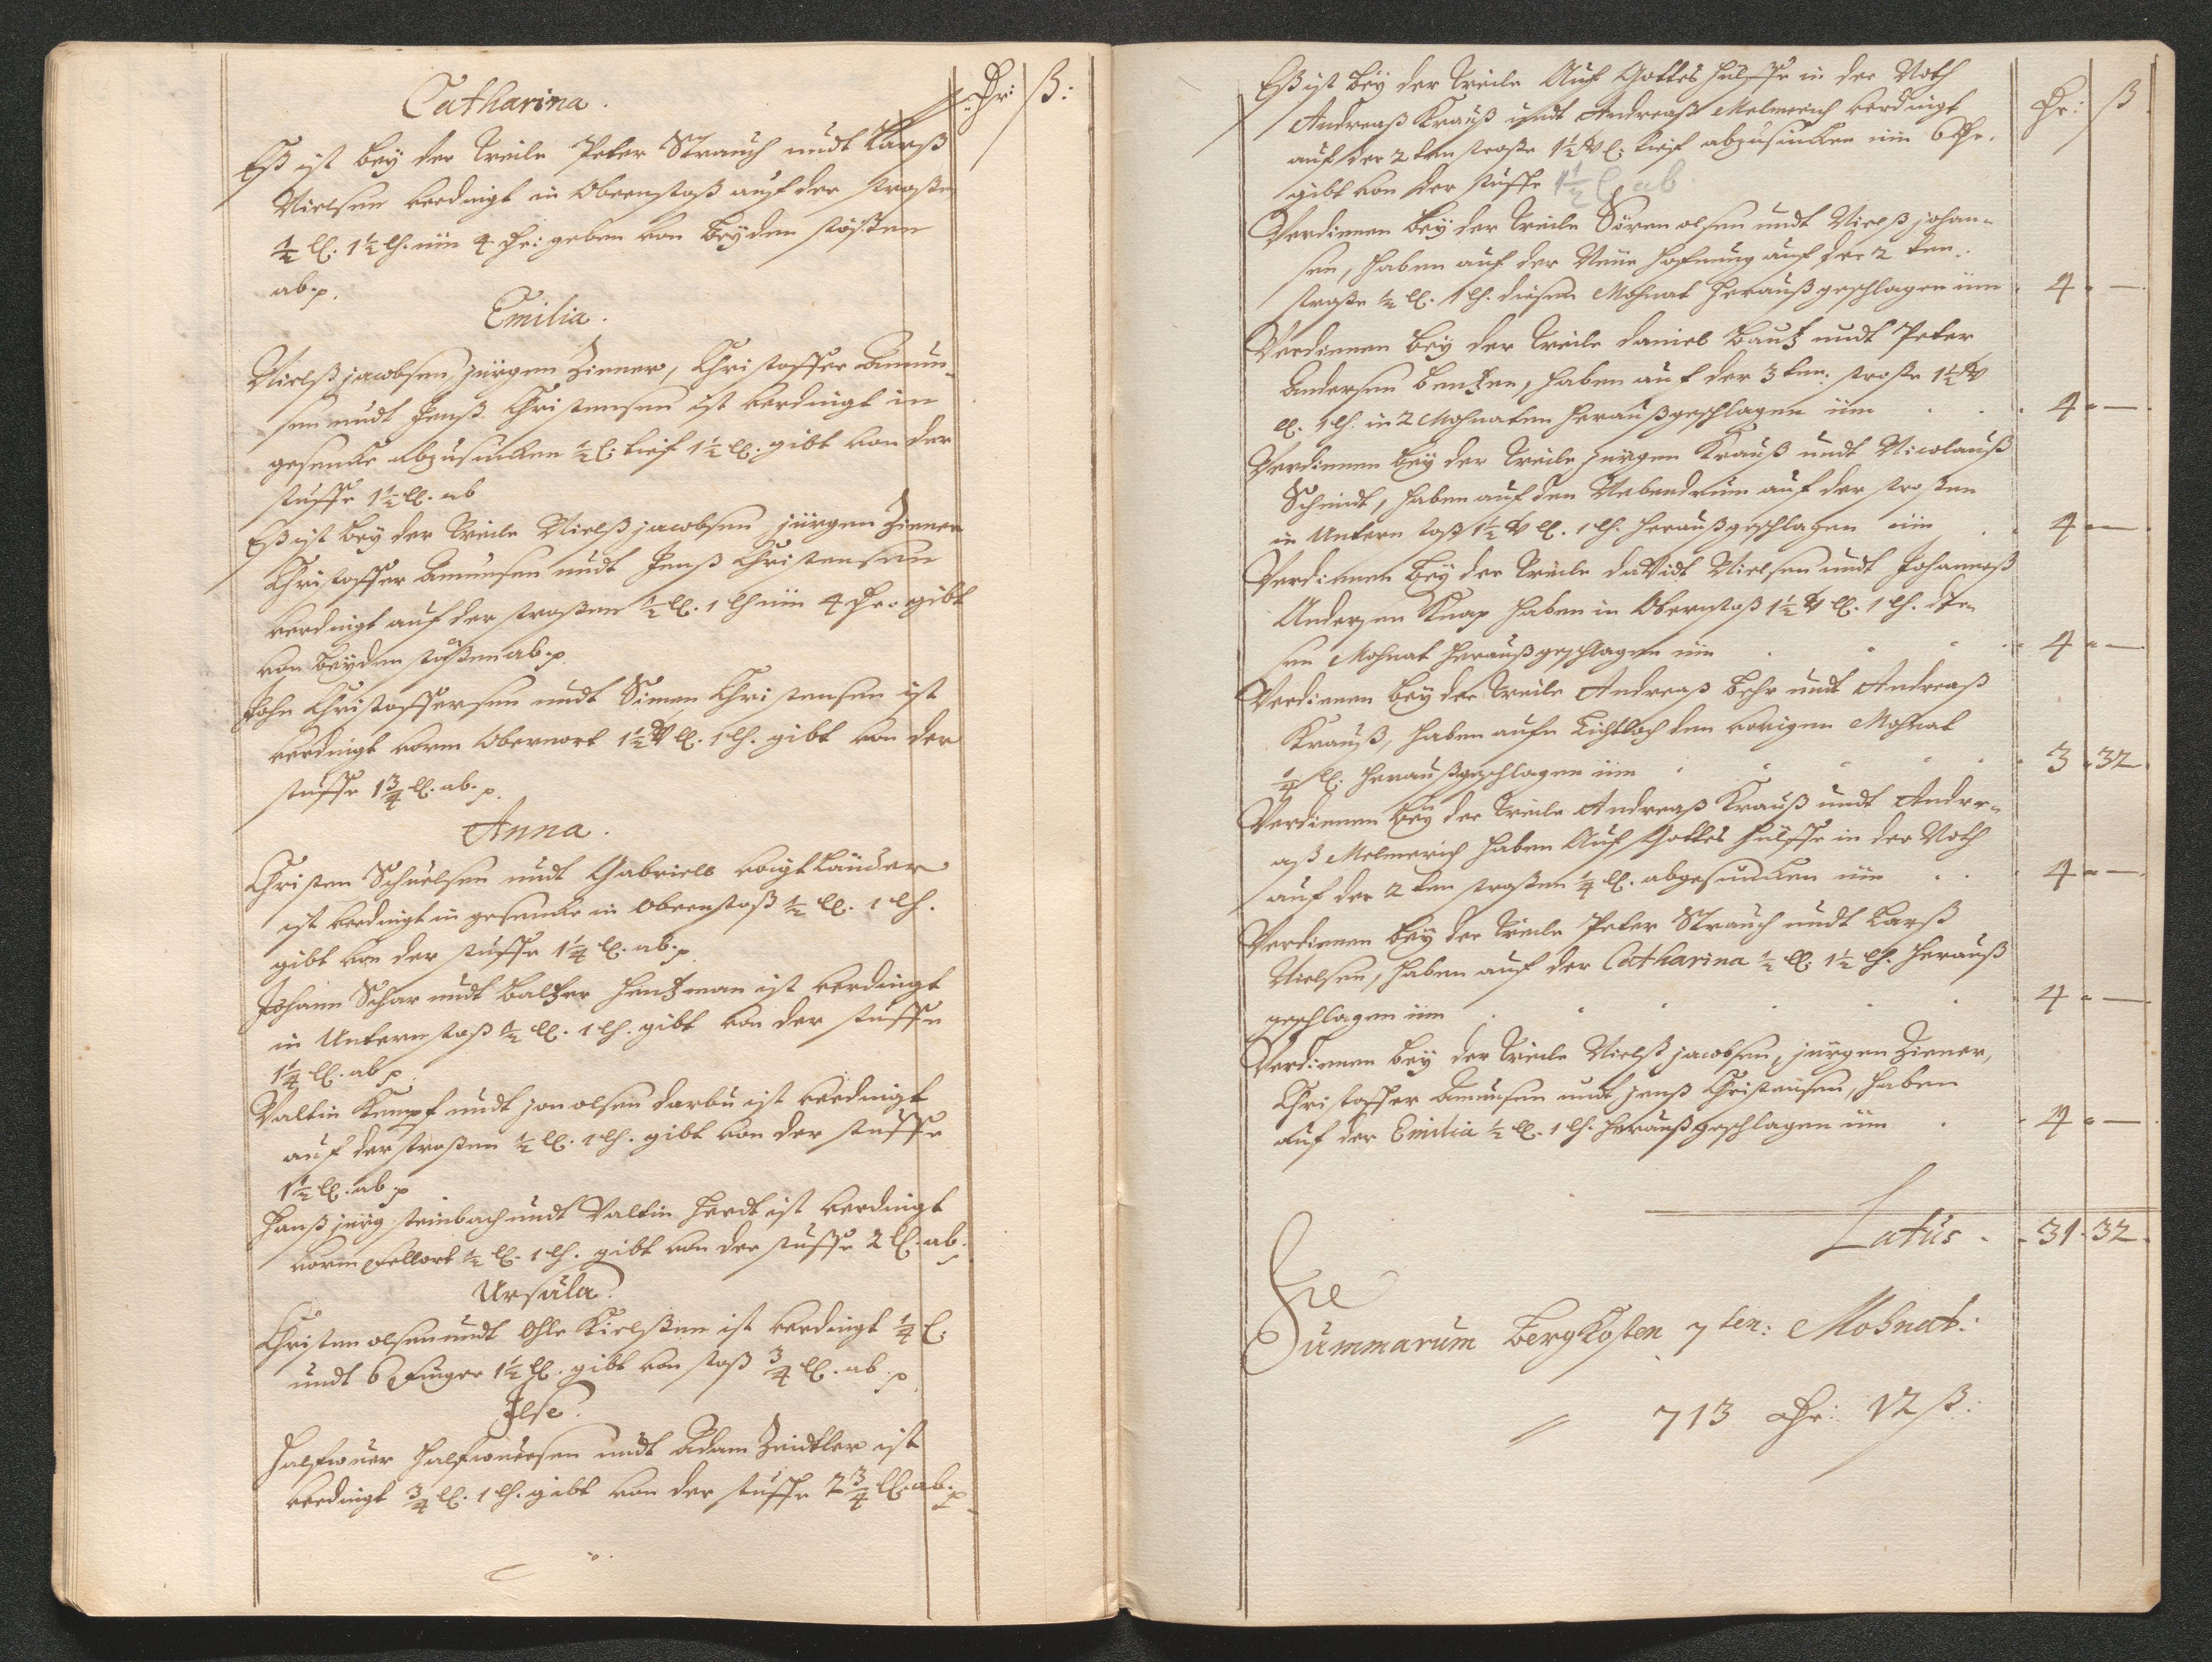 Catharina.
Dr: ß:
Eß ist bey der Weile Peter Strauch undt Larß
Nielsen verdingt in Obernstoß auf der stroßen
1/2 ll. 1 1/2 lh. üm 4 Dr: geben von beyden stößen
ab p.
Emilia.
Nielß jacobsen jürgen Ziener, Christoffer Amun-
sen undt Jenß Christensen ist verdingt in
gesencke abzusincken 1/2 l: tief 1 1/2 ll: gibt von der
stuffe 1 1/2 ll. ab
Eß ist bey der Weile Nielß jacobsen jürgen Ziener
Christoffer Amunsen undt Jenß Christensen
verdingt auf der stroßen 1/2 ll. 1 lh üm 4 Dr. gibt
von beyden stößen ab p.
John Christoffersen undt Simen Christensen ist
verdingt vorm Obernort 1 1/2 ll. 1 lh. gibt von der
stuffe 1 3/4 ll. ab. p.
Anna.
Christen Schuelsen undt Gabriell voigtländer
ist verdingt in gesencke in Obernstoß 1/2 ll. 1 lh.
gibt von der stuffe 1 1/4 ll. ab p.
Johann Schar undt Baltzer Hentzman ist verdingt
in Unternstoß 1/2 ll. 1 lh. gibt von der stuffe
1 1/4 ll. ab p.
Valtin Kempf undt jon olsen darbu ist verdingt
auf der stroßen 1/2 ll. 1 lh. gibt von der stuffe
1 1/2 ll. ab p
Hanß jürg steinbach undt Valtin Herdt ist verdingt
vorm fellort 1/2 ll. 1 lh. gibt von der stuffe 2 ll. ab.
Ursula.
Christen olsen undt Ohle Kielßen ist verdingt 1/4 l:
undt 6 Finger 1 1/2 ll. gibt von stoß 3/4 ll. ab p.
Ilse.
Halfwer Halfwersen undt Adam Zeidtler ist
verdingt 3/4 ll. 1 lh. gibt von der stuffe 2 3/4 ll. ab. p
Eß ist bey der Weile Auf Gottes Hülffe in der Noth
Dr: ß
Andreaß Krauß undt Andreaß Melmerich verdingt
auf der 2 ten stroße 1 1/2 l: tief abzusincken üm 6 Dr.
gibt von der stuffe 1 1/2 l. ab.
Verdienen bey der Weile Sören olsen undt Nielß johan-
sen, haben auf der Neüe Hofnung auf der 2 ten.
stroße 1/2 ll. 1 lh. diesen Mohnat heraußgeschlagen üm 4 -
Verdienen bey der Weile Daniel Bautz undt Peter
Andersen Bentzen, haben auf der 3 ten: stroße 1 1/2
ll. 1 lh. in 2 Mohnaten heraußgeschlagen üm 4 -
Verdienen bey der Weile jürgen Krauß undt Nicolauß
Schmidt, haben auf den Nebendrum auf der stroßen
in Untern stoß 1 1/2 ll. 1 lh. heraußgeschlagen üm 4 -
Verdienen bey der Weile davidt Nielsen undt Johanneß
Andersen Knap haben in Obernstoß 1 1/2 ll. 1 lh. die-
sen Mohnat heraußgeschlagen üm 4 -
Verdienen bey der Weile Andreaß Behr undt Andreaß
Krauß, haben aufn Lichtloch den vorigen Mohnat
1/4 ll. heraußgeschlagen üm 3 32
Verdienen bey der Weile Andreaß Krauß undt Andre-
aß Melmerich haben Auf Gottes Hülffe in der Noth
auf der 2 ten stroßen 1/4 ll. abgesuncken üm 4 -
Verdienen bey der Weile Peter Strauch undt Larß
Nielsen, haben auf der Catharina 1/2 ll. 1 1/2 lh. herauß
geschlagen üm 4 -
Verdienen bey der Weile Nielß jacobsen, jürgen Ziener,
Christoffer Amunsen undt jenß Christensen, haben
auf der Emilia 1/2 ll. 1 lh. heraußgeschlagen üm 4 -
Latus 31. 32.
Summarum BergKosten 7 ten: Mohnat:
713 Dr: 12 ß: